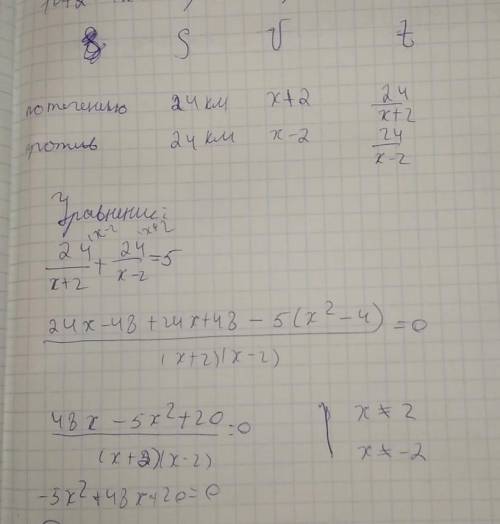 S V t
по течению 24 км x+2 24/(x+2)
против 24 км x-2 24/(x-2)
Уравнение:
24/(x+2) (x-2 + 24/(x-2) (x+2 = 5
(24x-48+24x+48-5(x²-4))/((x+2)(x-2)) = 0
(48x-5x²+20)/((x+2)(x-2)) = 0 | x≠2
x≠-2
-5x²+48x+20=0